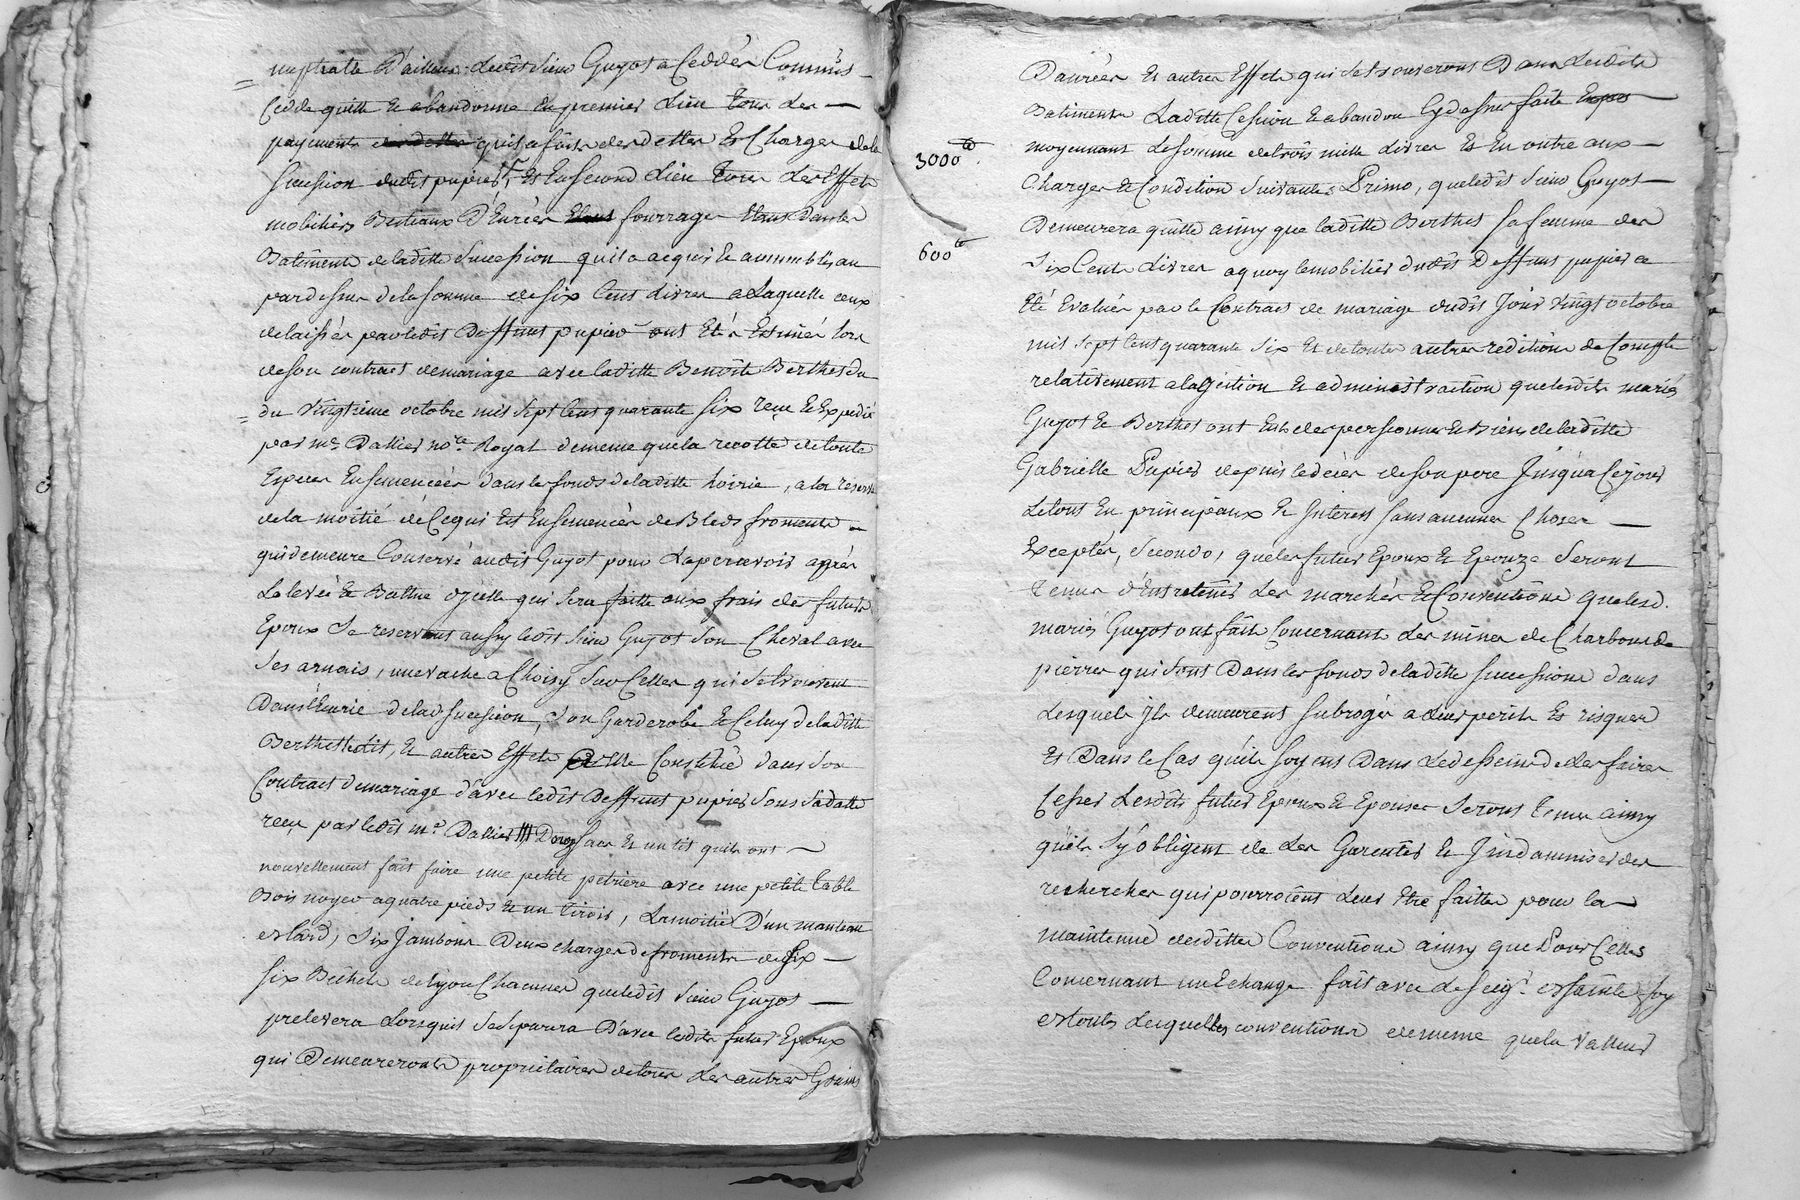 nuptialle D'ailleurs ledit Sieur Guyot a Ceddér Comm'il
Cedde quitte et abandonne En premier Lieu Tous Les
payements qu'il a faits des dettes Et Charges de la
Sucession dudit pupier, Et En Second Lieu Tous Les Effets
mobiliers Bestiaux D'Enrées fourrages Etans Dans les
Batiments de laditte Sucession qu'il a acquis Et ammeublis au
par dessus de la Somme de Six Cens Livres a Laquelle ceux
delaissés par ledit Deffunt pupier ont Eté Estimés lors
de Son contract de mariage avec laditte Benoite Berthet du
du Vingtieme octobre mil Sept Cent quarante Six reçu Et Expedié
par me. Dallier nore. Royal de meme que la recolte de toute
Especes Ensemencées dans les fonds de laditte hoirie, a la réserve
de la moitié de Ce qui Est Ensemencée de Bleds froments
qui demeure Conservé audit Guyot pour La percevoir après
La levée Et Battue d'jcelle qui Sera faitte aux frais des futurs
Epoux Se reservant aussy ledit Sieur Guyot Son Cheval avec
Ses arnais, une vache a Choisy Sur Celles qui Se trouvent
Dans l'Ecurie de lad Sucession, Son Garderobe Et Celuy de laditte
Berthet Et autres Effets Constitué dans Son
Contract de mariage d'avec ledit Deffunt pupier Sous Sa datte
reçu par ledit me. Dallier Douze Sacs Et un lit qu'ils ont
nouvellement fait faire une petite petriere avec une petite table
Bois noyer a quatre pieds Et un tiroir, La moitié D'un manteau
de lard, Six Jambons Deux charges de froments de Six
Six Bichets de Lyon Chacunes que ledit Sieur Guyot
prelevera Lorsquil Se Separera D'avec lesdits futurs Epoux
qui Demeureronts proprietaires de tous Les autres Grains
Danrées Et autres Effets qui Se trouverons Dans Lesdits
Batiments Laditte Cession Et abandon Cy dessus faite
3000 tt moyennant La Somme de trois mille Livres Et En outre aux
Charges Et Condition Suivantes Primo, que ledit Sieur Guyot
Demeurera quitte ainsy que laditte Berthet Sa femme des
600 tt Six Cents Livres a quoy le mobilier dudit Deffunt pupier a
Eté Evalués par le Contract de mariage dudit Jour vingt octobre
mil Sept Cent quarante Six Et de toutes autres redition de Compte
relativement a la Gestion Et administraction que lesdits mariés
Guyot Et Berthet ont Eus des personne Et Biens de laditte
Gabrielle Pupier depuis le décés de Son pere Jusqu'a Ce jour
Le tout En principaux Et Jnterets Sans aucunes Choses
Exceptér, Secondo, que les futurs Epoux Et Epouze Seront
Tenus d'Entretenir Les marchés Et Conventions que lesd.
mariés Guyot ont fait Concernant Les mines de Charbons de
pierres qui Sont Dans les fonds de laditte Successions dans
Lesquels Jls demeurent Subrogés a Leurs perils Et risques
Et Dans le Cas qu'ils Soyent Dans Le dessein de Les faires
Cesser Lesdits futurs Epoux Et Epouses Seront Tenus ainsy
qu'ils S'y obligent de Les Garentir Et Jndamniser des
recherches qui pourroient Leur Etre faittes pour la
maintenue desdittes Conventions ainsy que Pour Celles
Concernant un Echange fait avec Le Seigr. de Sainte foy
Et toutes Lesquelles conventions de meme que la Valleur